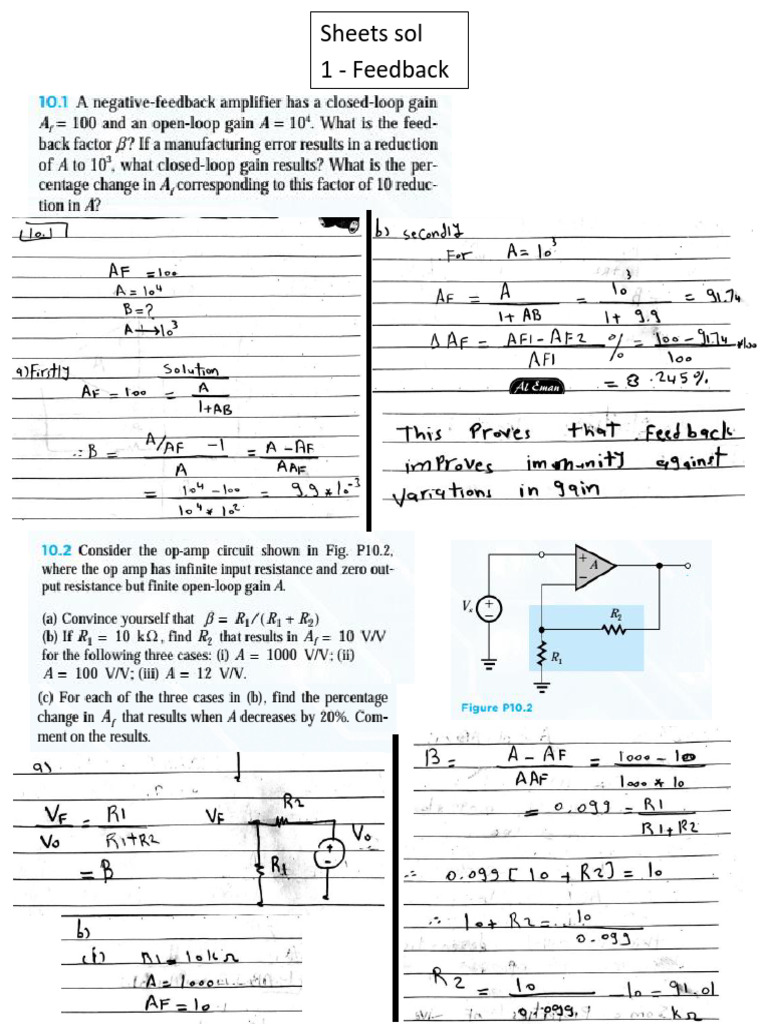 Sheets sol
1 - Feedback
10.1 A negative-feedback amplifier has a closed-loop gain
A_f = 100 and an open-loop gain A = 10⁴. What is the feed-
back factor β? If a manufacturing error results in a reduction
of A to 10³, what closed-loop gain results? What is the per-
centage change in A_f corresponding to this factor of 10 reduc-
tion in A?
10.1
AF = 100
A = 10⁴
B = ?
A → 10³
a) Firstly Solution
AF = 100 = A
1+AB
∴ B = A/AF - 1 = A - AF
A AAF
= 10⁴ - 100 = 9.9 * 10⁻³
10⁴ * 10²
b) secondly
For A = 10³
AF = A = 10³ = 91.74
1 + AB 1 + 9.9
Δ AF = AF1 - AF2 % = 100 - 91.74 * 100
AF1 100
AL Eman
= 8.245 %.
This Proves that Feedback
improves immunity against
variations in gain
10.2 Consider the op-amp circuit shown in Fig. P10.2,
where the op amp has infinite input resistance and zero out-
put resistance but finite open-loop gain A.
(a) Convince yourself that β = R₁/(R₁ + R₂)
(b) If R₁ = 10 kΩ, find R₂ that results in A_f = 10 V/V
for the following three cases: (i) A = 1000 V/V; (ii)
A = 100 V/V; (iii) A = 12 V/V.
(c) For each of the three cases in (b), find the percentage
change in A_f that results when A decreases by 20%. Com-
ment on the results.
A
V_s
R₂
R₁
Figure P10.2
a)
VF = R1
Vo R1+R2
= B
VF R2 Vo
R1
b)
(i) R1 = 10kΩ
A = 1000
AF = 10
B = A - AF = 1000 - 10
AAF 1000 * 10
= 0.099 = R1
R1 + R2
∴ 0.099 [ 10 + R2] = 10
∴ 10 + R2 = 10
0.099
R2 = 10 - 10 = 91.01
0.099 kΩ